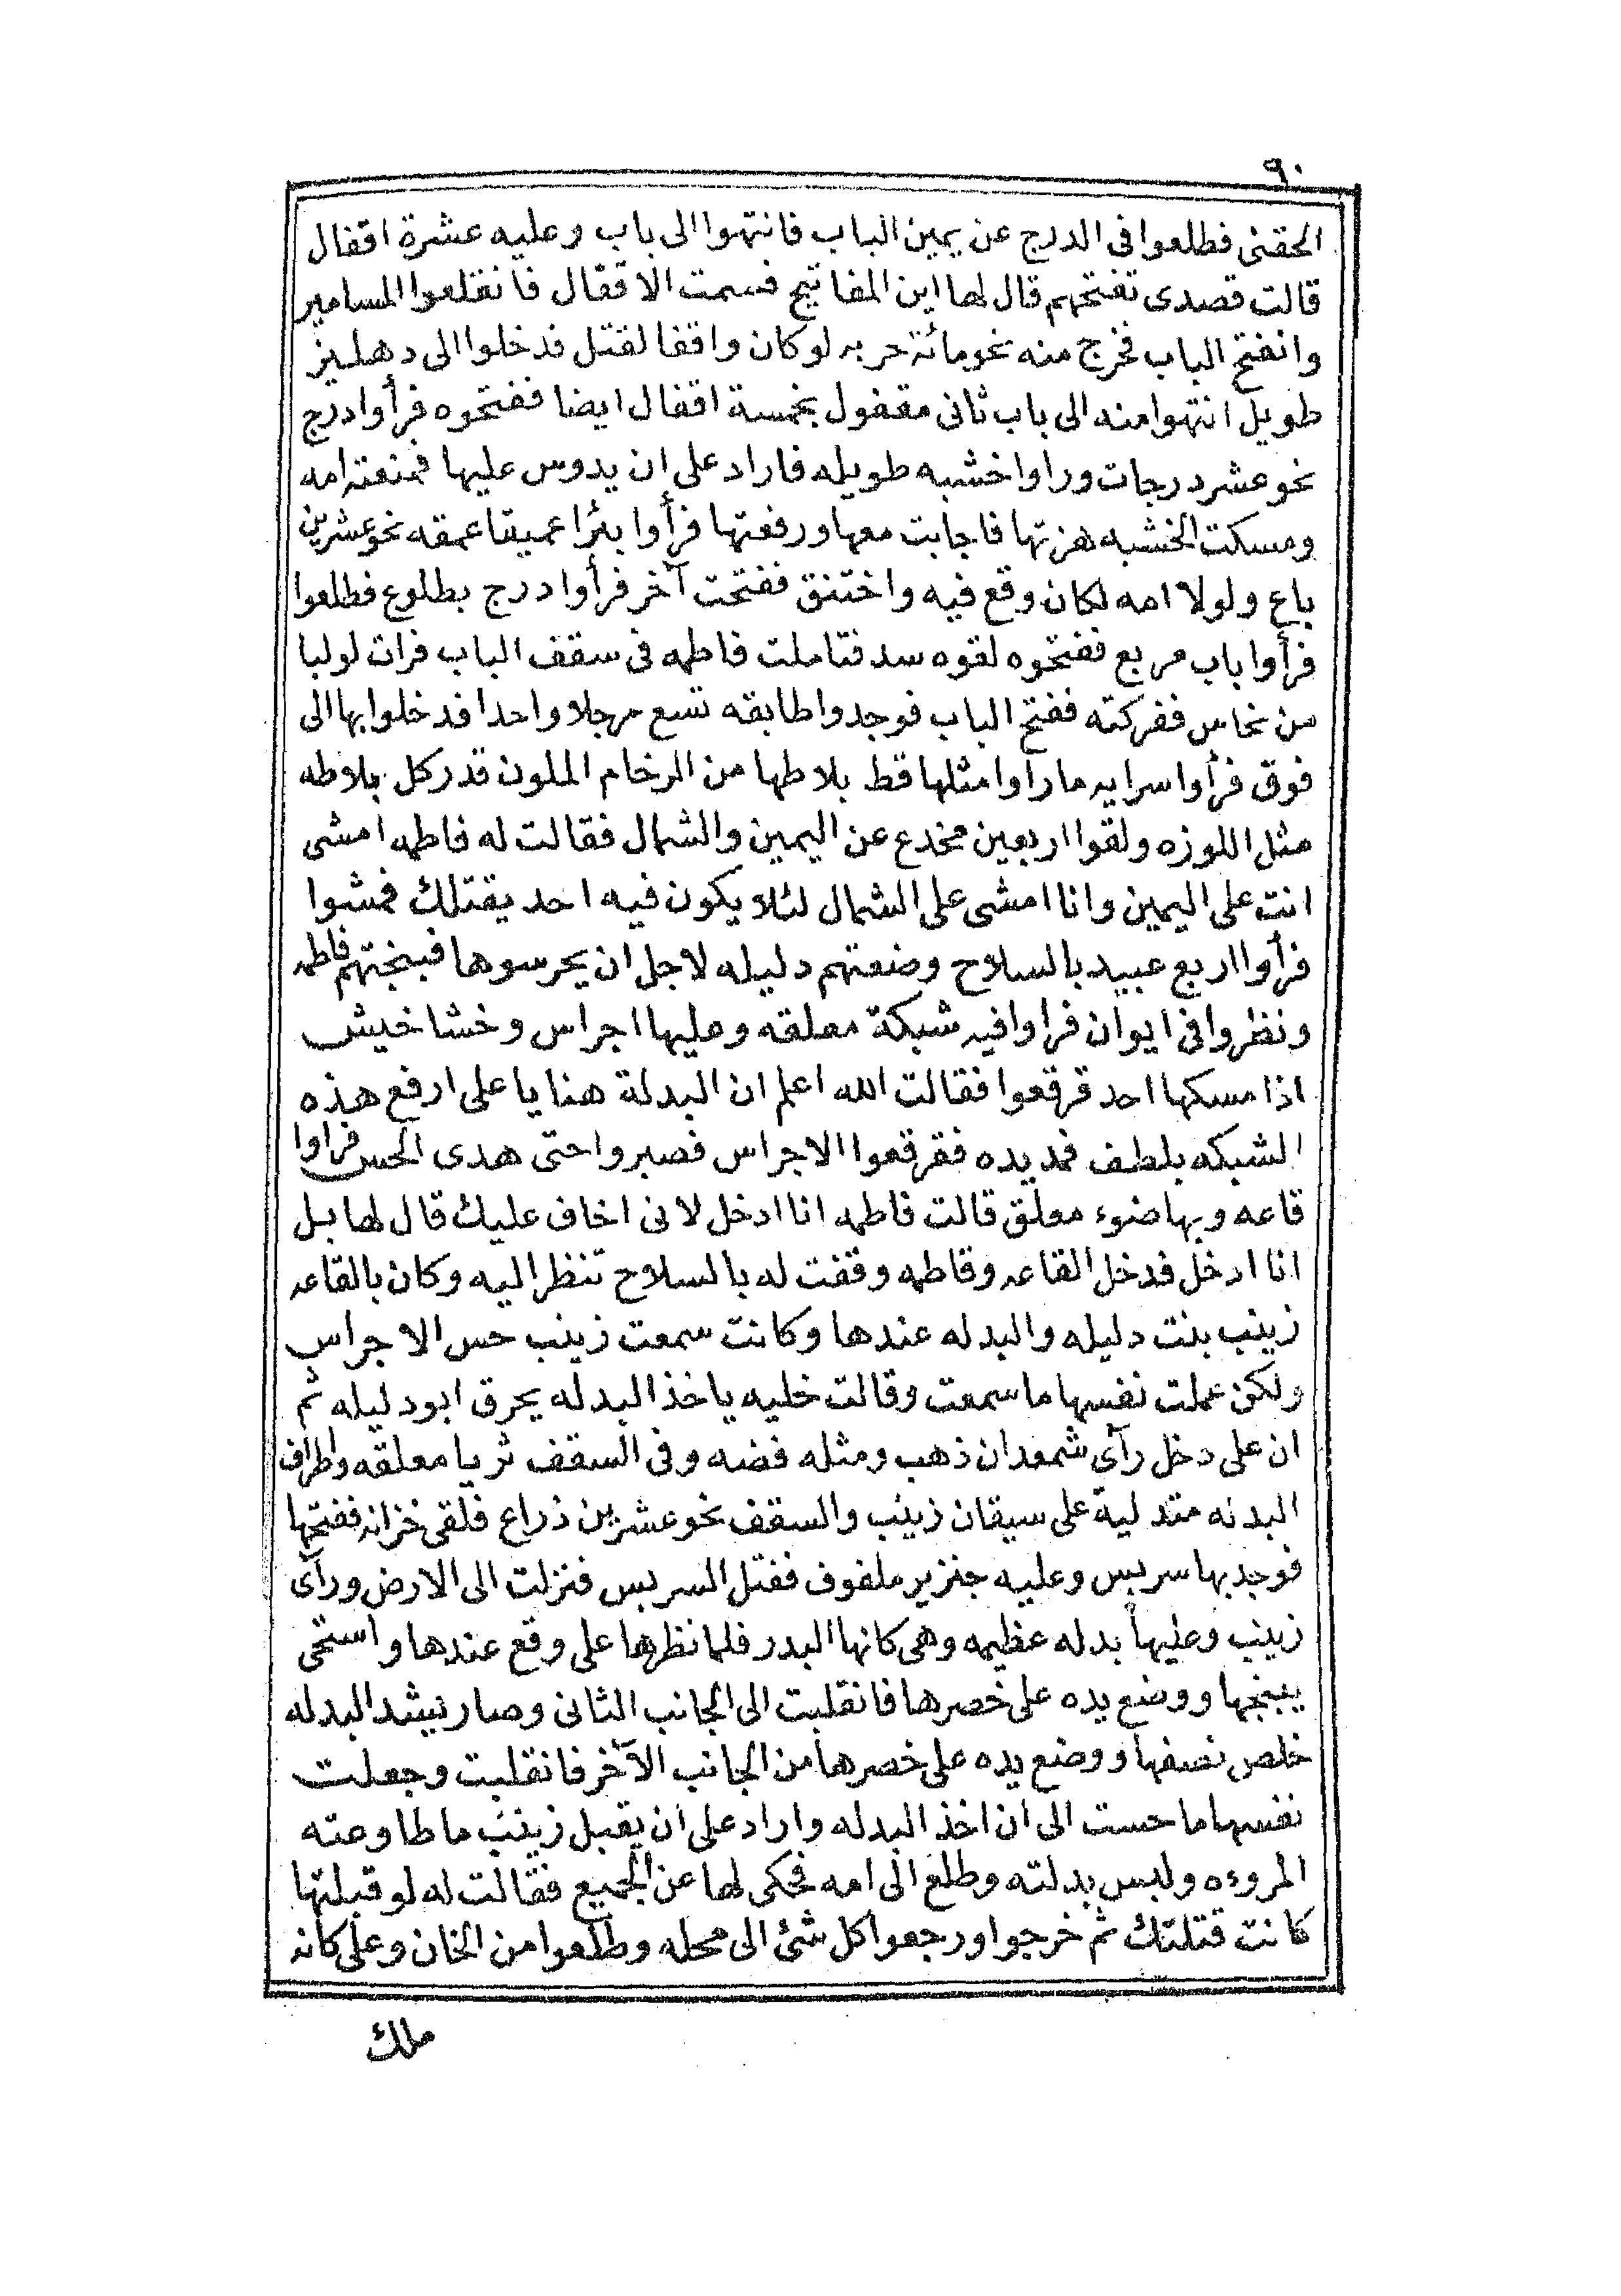 ٩٠
الحقنى فطلعوا فى الدرج عن يمين الباب فانتهوا الى باب وعليه عشرة اقفال
قالت قصدى تفتحهم قال لها اين المفاتيح فسمت الاقفال فانقلعوا المسامير
وانفتح الباب فخرج منه نحو مائة حربه لو كان واقفا لقتل فدخلوا الى دهليز
طويل انتهوا منه الى باب ثانى مقفول بخمسة اقفال ايضا ففتحوه فرأوا درج
نحو عشر درجات وراوا خشبه طويله فاراد على ان يدوس عليها فمنعته امه
ومسكت الخشبه هزتها فاجابت معها ورفعتها فرأوا بئرا عميقا عمقه نحو عشرين
باع ولولا امه لكان وقع فيه واختنق ففتحت آخر فرأوا درج بطلوع فطلعوا
فرأوا باب مربع ففتحوه لقوه سد فتاملت فاطمه فى سقف الباب فرات لولبا
من نحاس ففركته ففتح الباب فوجدوا طابقه تسع رجلا واحدا فدخلوا بها الى
فوق فرأوا سرايه ما رآوا مثلها قط بلاطها من الرخام الملون قدر كل بلاطه
مثل اللوزه ولقوا اربعين مخدع عن اليمين والشمال فقالت له فاطمه امشى
انت على اليمين وانا امشى على الشمال لئلا يكون فيه احد يقتلك فمشوا
فرأوا اربع عبيد بالسلاح وضعتهم دليله لاجل ان يحرسوها فبنجتهم فاطمه
ونظروا فى ايوان فراوا فيه شبكة معلقه وعليها اجراس وخشاخيش
اذا مسكها احد قرقعوا فقالت الله اعلم ان البدلة هنا يا على ارفع هذه
الشبكه بلطف فمد يده فقرقعوا الاجراس فصبروا حتى هدى الحس فراوا
قاعه وبها ضوء معلق قالت فاطمه انا ادخل لانى اخاف عليك قال لها بل
انا ادخل فدخل القاعه وفاطمه وقفت له بالسلاح تنظر اليه وكان بالقاعه
زينب بنت دليله والبدله عندها وكانت سمعت زينب حس الاجراس
ولكن عملت نفسها ما سمعت وقالت خليه ياخذ البدله يحرق ابو دليله ثم
ان على دخل رآى شمعدان ذهب ومثله فضه وفى السقف ثريا معلقه واطراف
البدنه متدلية على سيقان زينب والسقف نحو عشرين ذراع فلقى خزانه ففتحها
فوجد بها سريس وعليه جنزير ملفوف ففتل السريس فنزلت الى الارض ورآى
زينب وعليها بدله عظيمه وهى كانها البدر فلما نظرها على وقع عندها واستحى
يبنجها ووضع يده على خصرها فانقلبت الى الجانب الثانى وصار يشد البدله
خلص نصفها ووضع يده على خصرها من الجانب الآخر فانقلبت وجعلت
نفسها ما حست الى ان اخذ البدله واراد على ان يقبل زينب ما طاوعته
المروءه ولبس بدلته وطلع الى امه فحكى لها عن الجميع فقالت له لو قبلتها
كانت قتلتك ثم خرجوا ورجعوا كل شئ الى محله وطلعوا من الخان وعلى كانه
ملك